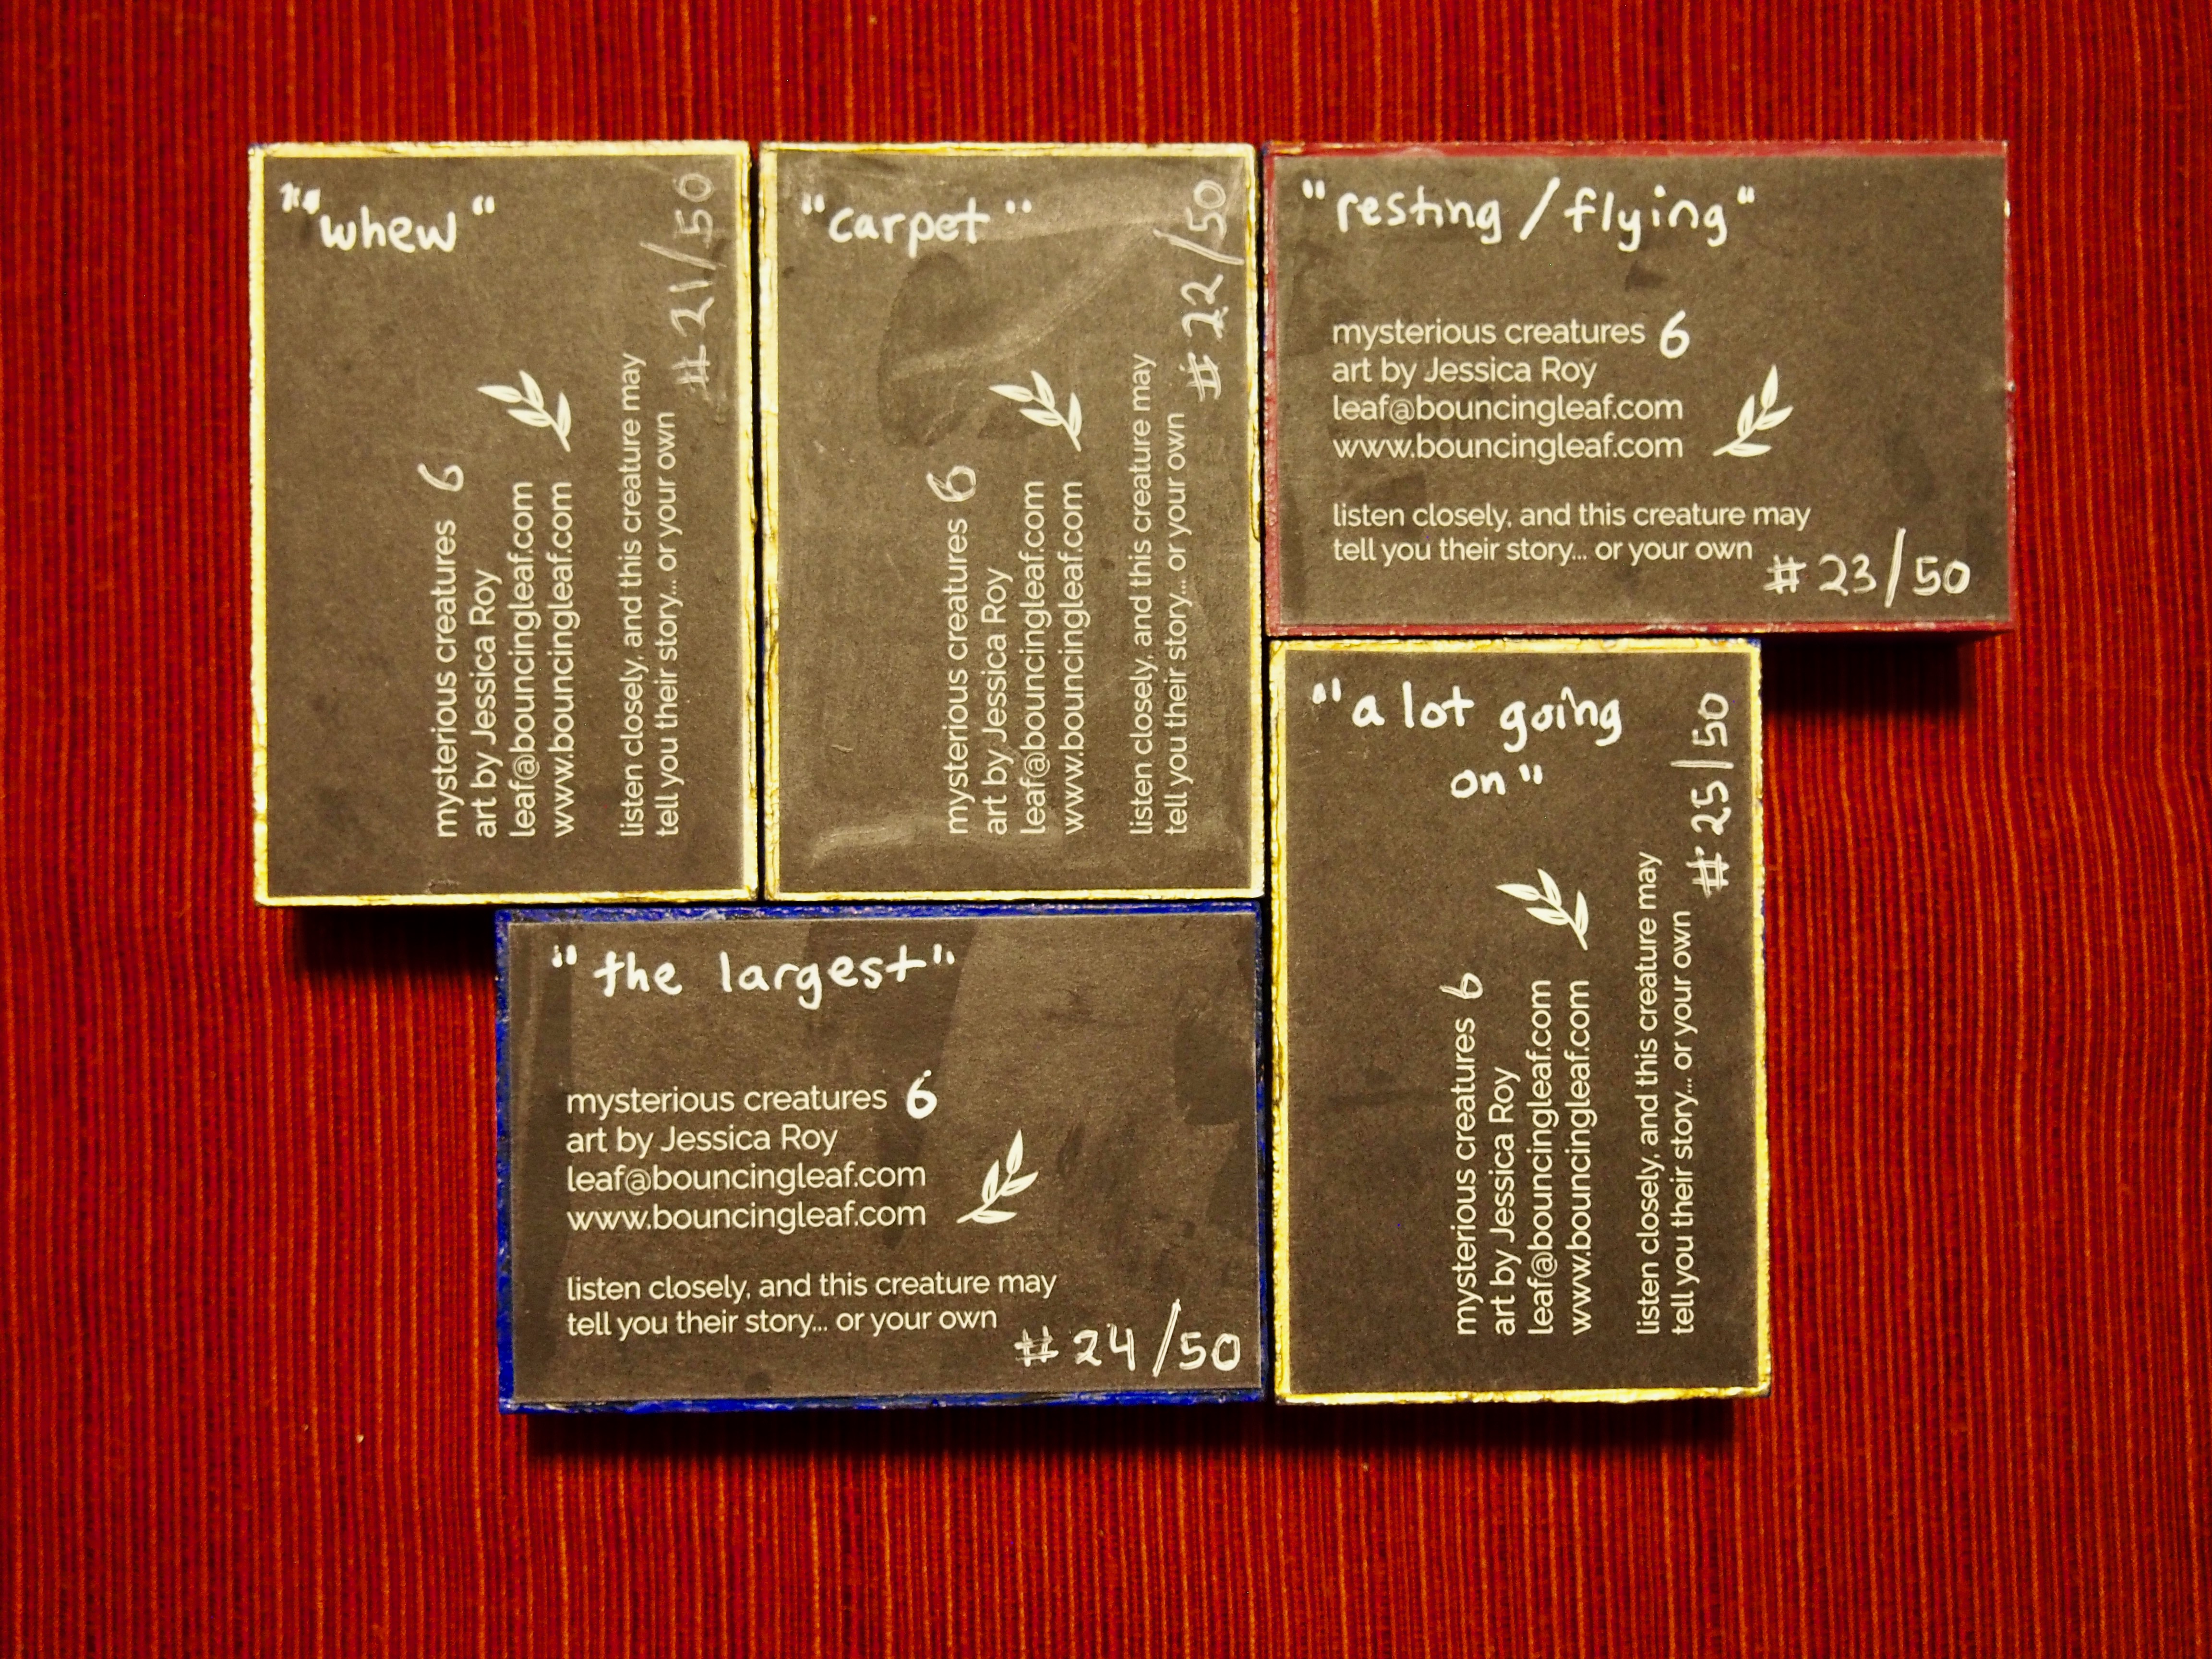 "" whew "
mysterious creatures 6
art by Jessica Roy
leaf@bouncingleaf.com
www.bouncingleaf.com
listen closely, and this creature may
tell you their story... or your own
#21/50
"carpet"
mysterious creatures 6
art by Jessica Roy
leaf@bouncingleaf.com
www.bouncingleaf.com
listen closely, and this creature may
tell you their story... or your own
#22/50
"resting/flying"
mysterious creatures 6
art by Jessica Roy
leaf@bouncingleaf.com
www.bouncingleaf.com
listen closely, and this creature may
tell you their story... or your own
#23/50
"the largest"
mysterious creatures 6
art by Jessica Roy
leaf@bouncingleaf.com
www.bouncingleaf.com
listen closely, and this creature may
tell you their story... or your own
#24/50
"a lot going
on"
mysterious creatures 6
art by Jessica Roy
leaf@bouncingleaf.com
www.bouncingleaf.com
listen closely, and this creature may
tell you their story... or your own
#25/50